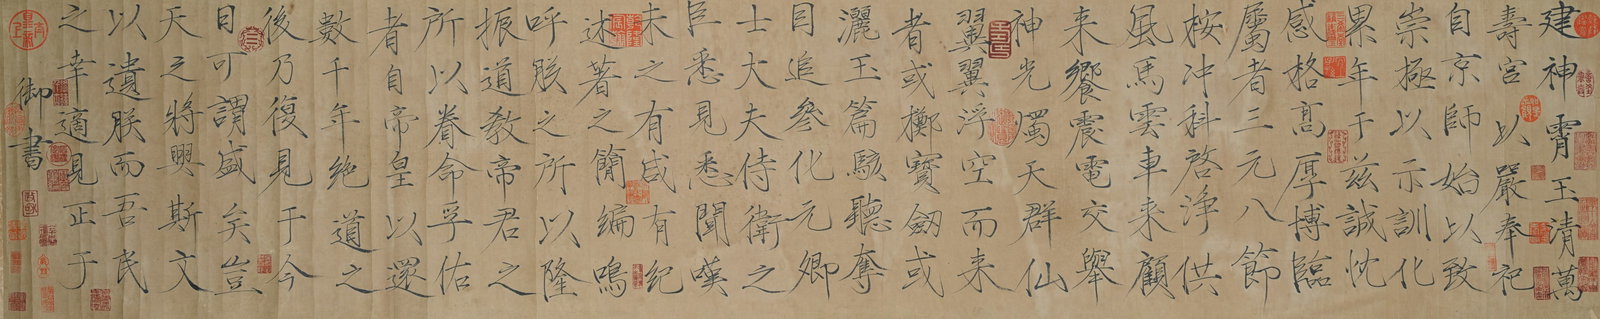 建神霄玉清萬
壽宮以嚴奉祀
自京師始以致
崇極以示訓化
累年于茲誠忱
感格高厚博臨
屬者三元八節
桉沖科啓淨供
風馬雲車来顧
来饗震電交舉
神光燭天群仙
翼翼浮空而来
者或擲寶劒或
灑玉篇駭聽奪
目追參化元卿
士大夫侍衛之
臣悉見悉聞嘆
未之有咸有紀
述著之簡編嗚
呼朕之所以隆
振道教帝君之
所以眷命孚佑
者自帝皇以還
數千年絶道之
後乃復見于今
日可謂盛矣豈
天之將興斯文
以遺朕而吾民
之幸適見正于
御書